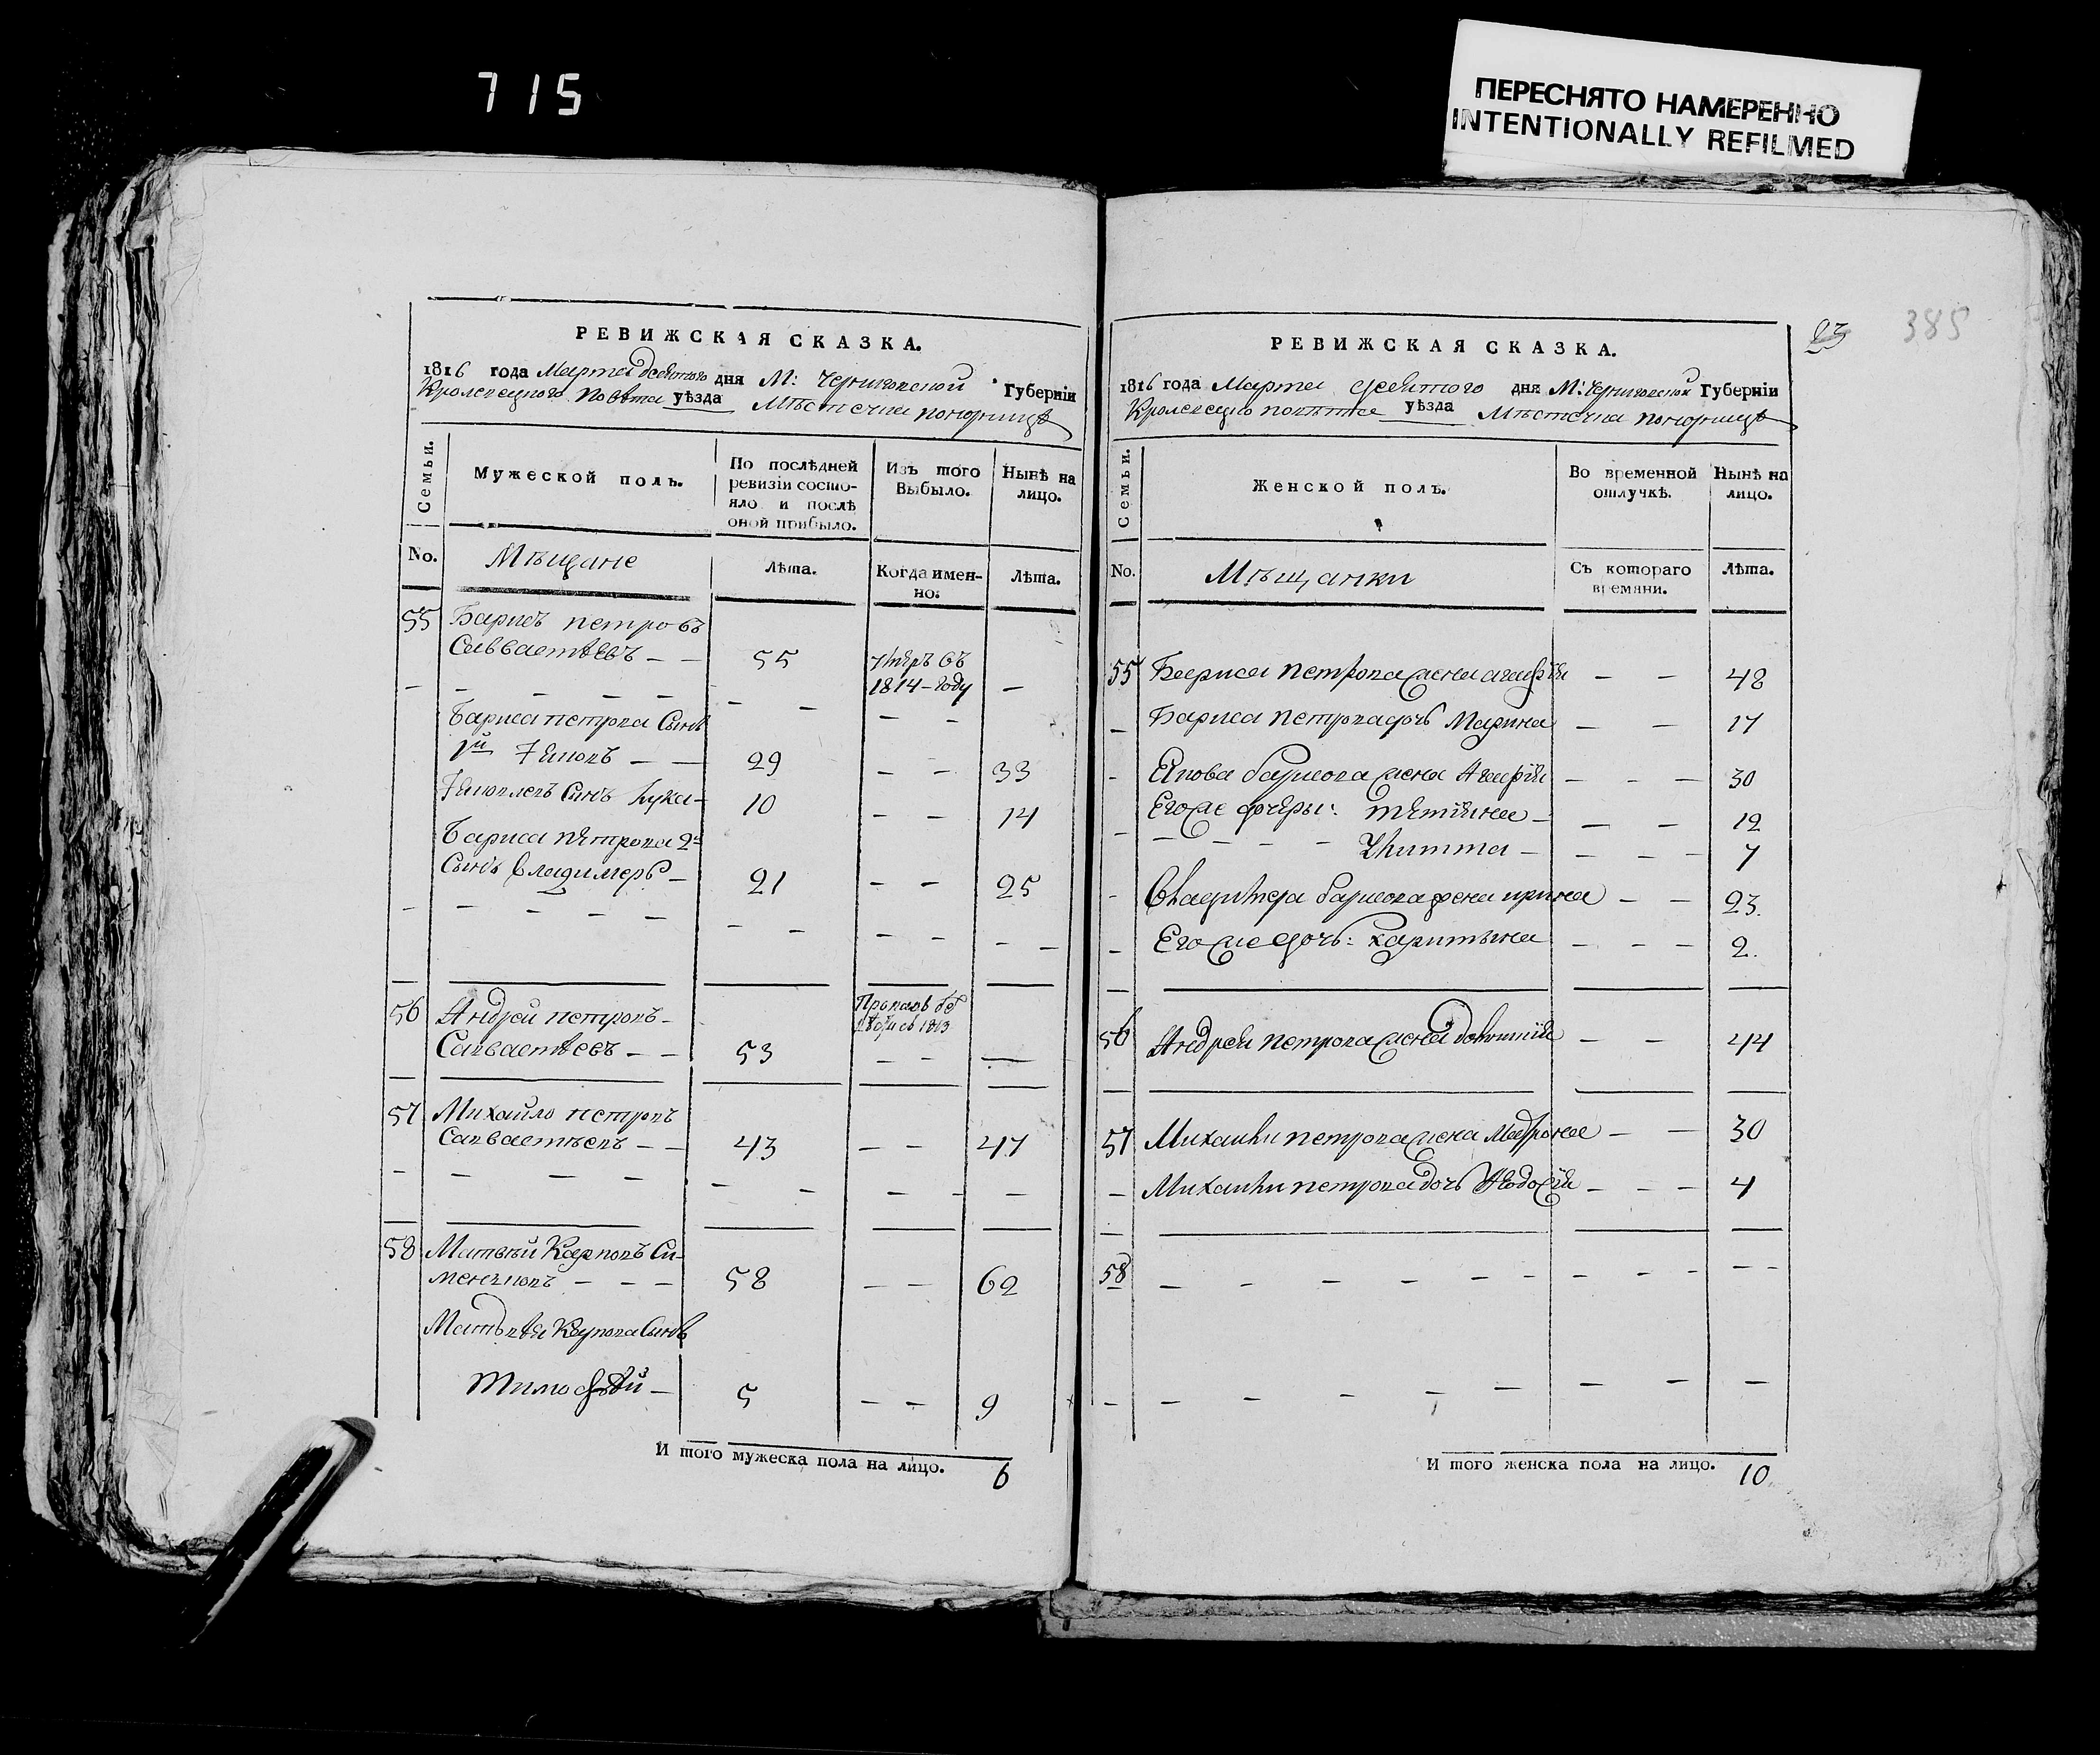 715
ПЕРЕСНЯТО НАМЕРЕННО
INTENTIONALLY REFILMED
РЕВИЖСКАЯ СКАЗКА.
1816 года Марта девятого дня М: Черниговской Губернiи
Кролевецкого Повѣта уѣзда Мѣстечка понорницѣ
Семьи.
Мужеской полъ.
По послѣдней
ревизiи состо-
яло и послѣ
оной прибыло.
Изъ того
Выбыло.
Нынѣ на
лицо.
No.
Мѣщане
Лѣта.
Когда имен-
но:
Лѣта.
55 Барисъ петровъ
Савваетѣевъ – – 55 умеръ въ
1814 – году –
Бариса петрова Сынъ
1й – – 29 – – 33
Сынъ Лука – 10 – – 14
Бариса петрова 2й
Сынъ Владимеръ – 21 – – 25
56 Андрей петровъ – Пропалъ
1813
Савваетѣевъ – – 53 – – –
57 Михайло петровъ
Савваетѣевъ – – 43 – – 47
58 Матвѣй Карповъ Си-
меновъ – – – 58 – – 62
Матвѣя Карпова Сынъ
Тимофѣй – 5 – – 9
И того мужеска пола на лицо. 6
23
385
РЕВИЖСКАЯ СКАЗКА.
1816 года Марта девятого дня М: Черниговской Губернiи
Кролевецко повѣта уѣзда Мѣстечка понорницѣ
Семьи.
Женской полъ.
Во временной
отлучкѣ.
Нынѣ на
лицо.
No.
Мѣщанки
Съ котораго
времяни.
Лѣта.
55 Бариса петрова жена агафiя – – 48
Бариса петрова дочъ Марина – – 17
барисова жена Агафiя – – – 30
Егоже дочеры: тетiяна – – – 12
– – – – – – – 7
Владимера барисова жена ирина – – 23.
Егоже дочъ: харитина – – – 2.
56 Андрея петрова жена – – 44
57 Михайли петрова жена Матрона – – 30
Михайли петрова дочъ Феодосiя – – – 4
58 – – – – – – – – – – –
И того женска пола на лицо. 10